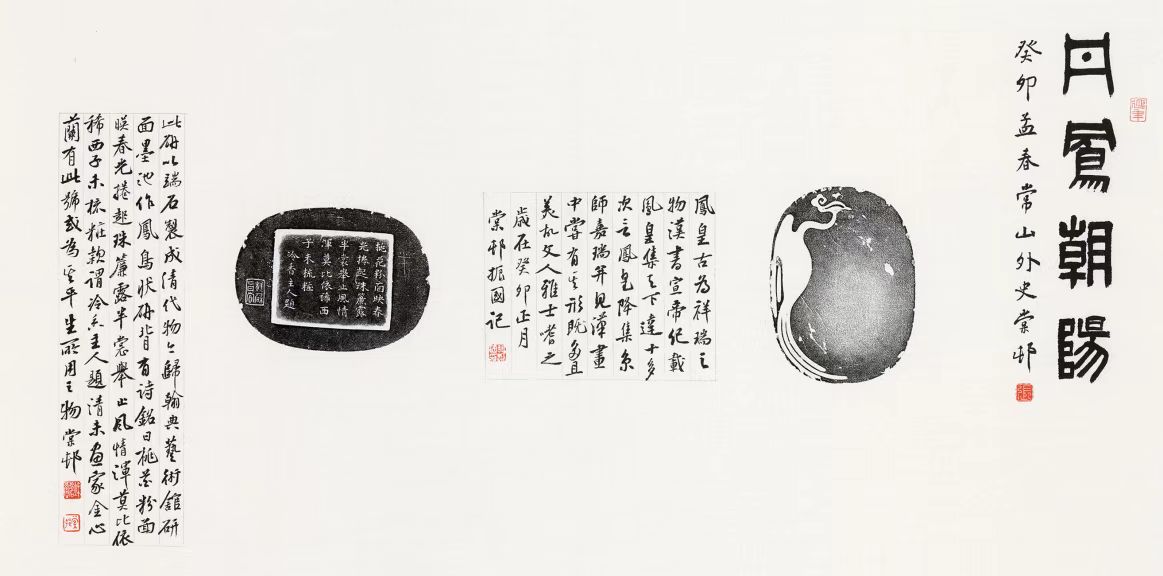 丹鳳朝陽
癸卯孟春常山外史棠邨
鳳皇古為祥瑞之
物漢書宣帝纪載
鳳皇集天下達十多
次云鳳皇降集京
師嘉瑞并見漢畫
中嘗有其形既多且
美故文人雅士嗜之
歲在癸卯正月
棠邨振國記
桃花粉面映春
光捲起珠簾露
半裳舉止風情
渾莫比依稀西
子未梳粧
冷香主人題
此研以端石製成清代物今歸翰典藝術館研
面墨池作鳳鳥狀研背有詩銘曰桃花粉面
映春光捲起珠簾露半裳舉止風情渾莫比依
稀西子未梳粧款謂冷香主人題清末畫家金心
蘭有此號或為其平生所用之物棠邨